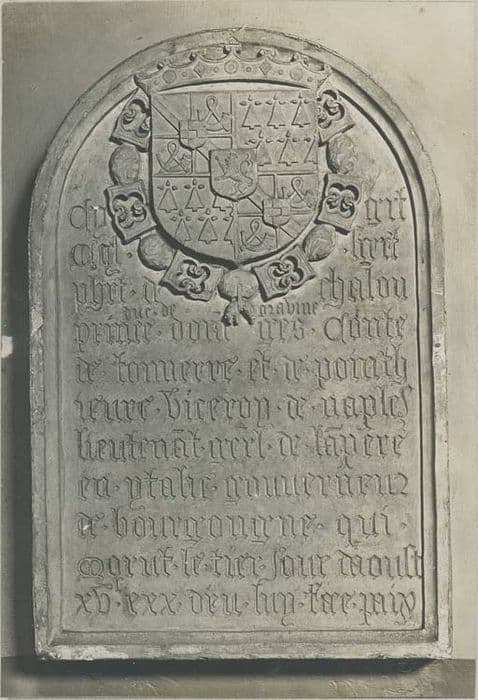 Cy git
Msgr
phēt d chalon
duc de gravine
prince dorā ges · Conte
de tonnerre · et de ponth
ieure · Viceroy · de naples
lieutenāt · gērl · de lāpere
en · ytalie · gouverneur
de · bourgougne · qui ·
Morut · le · tier · Jour · daoust
xvᶜ · xxx · dieu · luy · face · paix